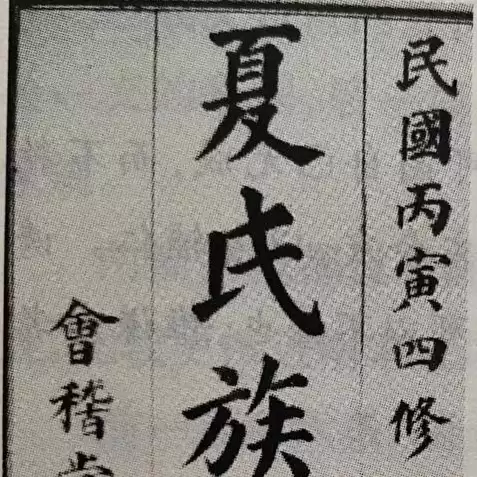 民國丙寅四修
夏氏族
會稽堂